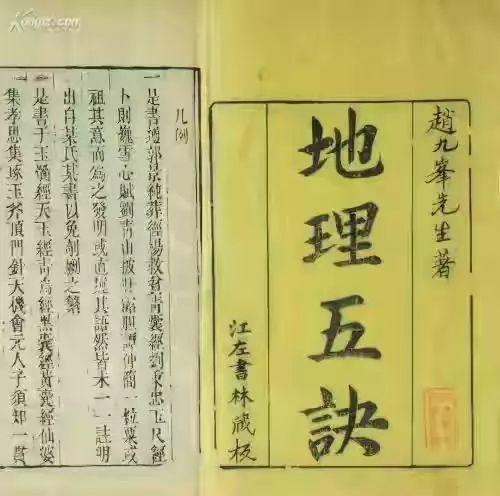 趙九峯先生著
地理五訣
江左書林藏板
凡例
一是書遵郭景純葬經楊救貧青囊經劉秉忠玉尺經
卜則巍雪心賦劉青山披肝露胆譚仲簡一粒粟或
祖其意而為之發明或直捷其語然皆未一一註明
出自某氏某書以免剞劂之繁
一是書于玉髓經天玉經青烏經黑囊經黃囊經仙婆
集孝思集琢玉斧頂門針天機會元人子須知一貫